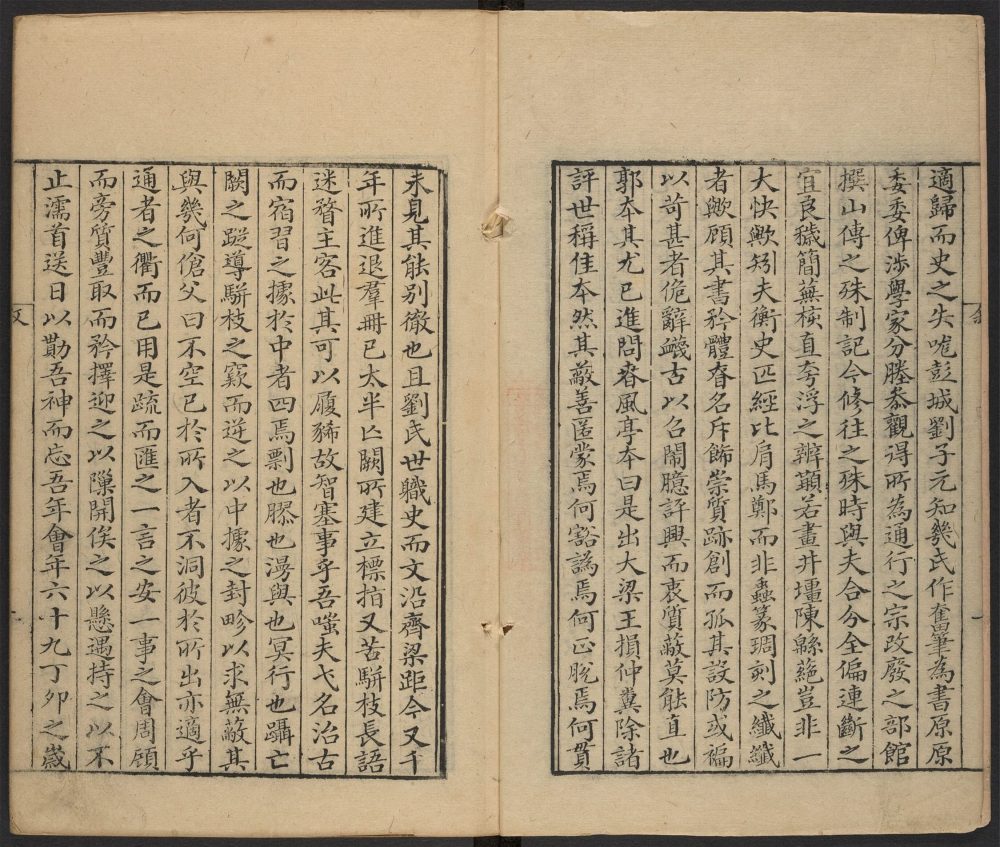 適歸而史之失咙彭城劉子元知幾氏作奮筆為書原原
委委俾涉學家分塍叅觀得所為通行之宗改廢之部館
撰山傳之殊制記今修往之殊時與夫合分全偏連斷之
宜良穢簡蕪核直夸浮之辨顓若畫井壃陳緜蕝豈非一
大快歟矧夫衡史匹經比肩馬鄭而非蟲篆琱刻之纖纖
者歟顧其書矜體奢名斥飾崇質跡創而孤其設防或褊
以苛甚者佹辭衊古以召鬧臆評興而衷質蔽莫能直也
郭本其尤已進問舂風亭本曰是出大梁王損仲糞除諸
評世稱佳本然其蔽善匿蒙焉何豁譌焉何正脫焉何貫
未見其能别徹也且劉氏世職史而文沿齊梁距今又千
年所進退羣冊已太半亾闕所建立標指又苦駢枝長語
迷瞀主客此其可以履豨故智塞事乎吾嗤夫弋名治古
而宿習之據於中者四焉剽也膠也漫與也冥行也躡亡
闕之蹤導駢枝之窾而逆之以中據之封畛以求無蔽其
與幾何傖父曰不空己於所入者不洞彼於所出亦適乎
通者之衢而已用是疏而匯之一言之安一事之會周顧
而旁質豐取而矜擇迎之以隟開俟之以懸遇持之以不
止濡首送日以勩吾神而忘吾年會年六十九丁卯之歲